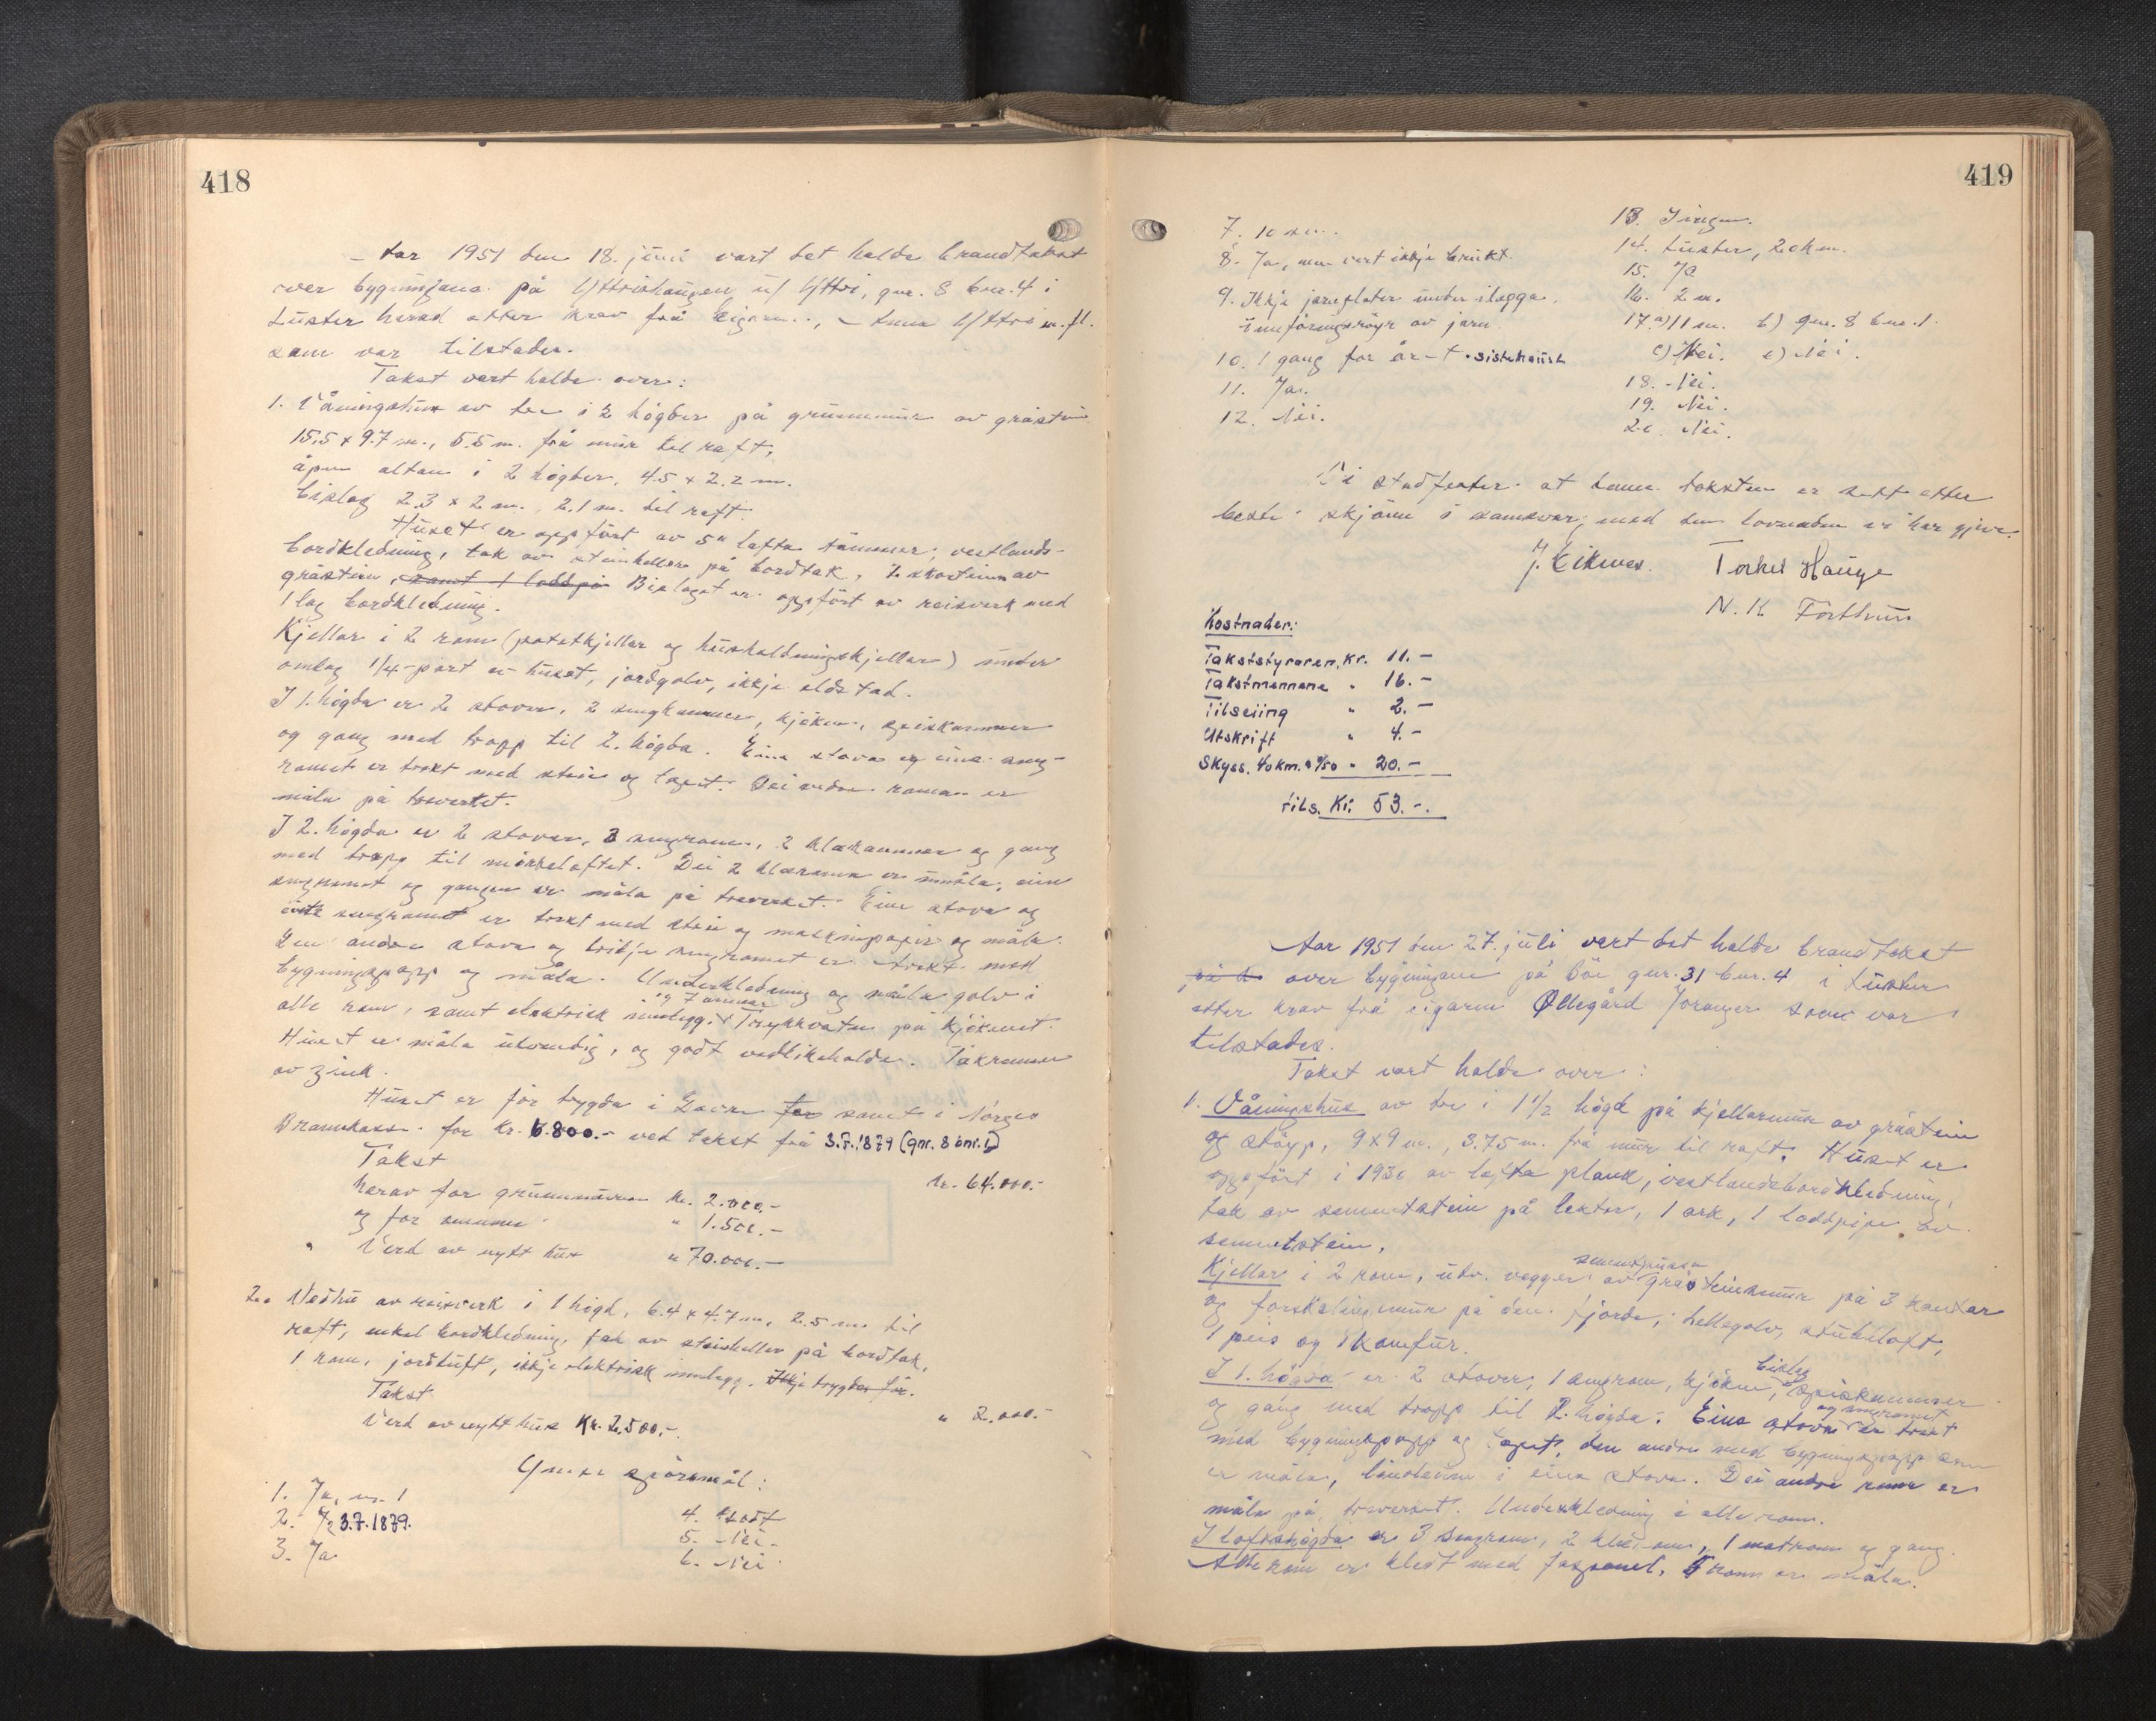 418
Aar 1951 den 18. juni vart det halde brandtakst
over bygningane på Yttrishaugen u/ Yttri, gnr. 8 bnr. 4 i
Luster herad etter krav frå eigaren, Yttri m. fl.
som var tilstades.
Takst vart halde over:
1. Våningshus av tre i 2 høgder på grunnmur av gråstein
15,5 x 9.7 m., 5.5 m. frå mur til raft,
åpen altan i 2 høgder, 4.5 x 2.2 m.
Bislag 2.3 x 2 m., 2.1 m. til raft.
Huset er oppført av 5" lafta tømmer, vestlands-
bordkledning, tak av steinheller på bordtak, 2 skorstein av
gråstein, samt 1 loddpipe Bislaget er oppført av reisverk med
1 lag bordkledning.
Kjellar i 2 rom (potetkjellar og hushaldningskjellar) under
omlag 1/4-part av huset, jordgolv, ikkje eldstad.
I 1. høgda er 2 stover, 2 sengkammer, kjøken, speiskammer
og gang med trapp til 2. høgda. Eine stova og eine seng-
romet er trekt med strie og tapet. Dei andre roma er
måla på treverket.
I 2. høgda er 2 stover, 3 sengrom, 2 klekammer og gang
med trapp til mørkeloftet. Dei 2 klerom er umåla, ein
sengromet og gangen er måla på treverket. Eine stova og
eitt sengromet er trekt med strie og maskinpapir og måla.
Den andre stova og tridje sengromet er trekt med
bygningspapp og måla. Underkledning og måla golv i
alle rom, samt elektrisk innlegg. og 7 omnar Trykkvatn på kjøkenet.
Huset er måla utvendig, og godt vedlikeholde. Takrenner
av zink.
Huset er før trygda i Gavn for samt i Norges
Brannkasse for kr. 6.800.- ved takst frå 3.7.1879 (gnr. 8 bnr. 1)
Takst kr. 64.000.-
herav for grunnmuren kr. 2.000.-
og for omnane " 1.500.-
" Verd av nytt hus " 70.000.-
2. Vedhus av reisverk i 1 høgd, 6.4 x 4.7 m, 2.5 m til
raft, enkel bordkledning, tak av steinheller på bordtak,
1 rom, jordtuft, ikkje elektrisk innlegg. Ikkje trygda før.
Takst " 2.000.-
Verd av nytt hus kr. 2,500,-
Ymse spørsmål:
1. Ja, nr. 1
2. 3.7.1879.
3. Ja
4. Godt
5. Nei.
6. Nei
419
7. 10 m.
8. Ja, men vert ikkje brukt.
9. Ikkje jarnplater under ilegga.
Innføringsrøyr av jarn
10. 1 gang for året. sistehaust
11. Ja.
12. Nei.
13. Ingen.
14. Luster, 20 km.
15. Ja
16. 2 m.
17. a) 11 m. b) gnr. 8 bnr. 1.
c) Nei. e) Nei.
18. Nei.
19. Nei.
20. Nei.
Vi stadfester at denne taksten er sett etter
beste skjønn i samsvar med den lovnaden vi har gjeve.
J. Eikenes. Torkel Hauge
N. K. Forthun
Kostnader:
Takststyraren, Kr. 11.-
Takstmennene " 16.-
Tilseiing " 2.-
Utskrift " 4.-
Skyss. 40 km. a 0/50 " 20.-
tils. Kr. 53.-.
Aar 1951 den 27. juli vart det halde brandtakst
på b over bygningane på Bøe gnr. 31 bnr. 4 i Luster
etter krav frå eigaren Øllegård Joranger som var
tilstades.
Takst vart halde over:
1. Våningshus av tre i 1 1/2 høgd på kjellarmur av gråstein
og støyp, 9 x 9 m., 3.75 m. frå mur til raft. Huset er
oppført i 1930 av lafta plank, vestlandsbordkledning,
tak av sementstein på lekter, 1 ark, 1 loddpipe av
sementstein.
Kjellar i 2 rom, utv. vegger av sementpussa gråsteinsmur på 3 kantar
og forskalingsmur på den fjorde, hellegolv, stubeloft,
1 peis og 1 komfur.
I 1. høgda er 2 stover, 1 sengrom, kjøken, bislag, speiskammer
og gang med trapp til 2. høgda. Eine stova og sengromet er trekt
med bygningspapp og tapet, den andre med bygningspapp som
er måla, linoleum i eine stova. Dei andre rom er
måla på treverket. Underkledning i alle rom.
I loftshøgda er 3 sengrom, 2 klerom, 1 matrom og gang.
Alle rom er kledt med faspanel, 5 rom er måla.